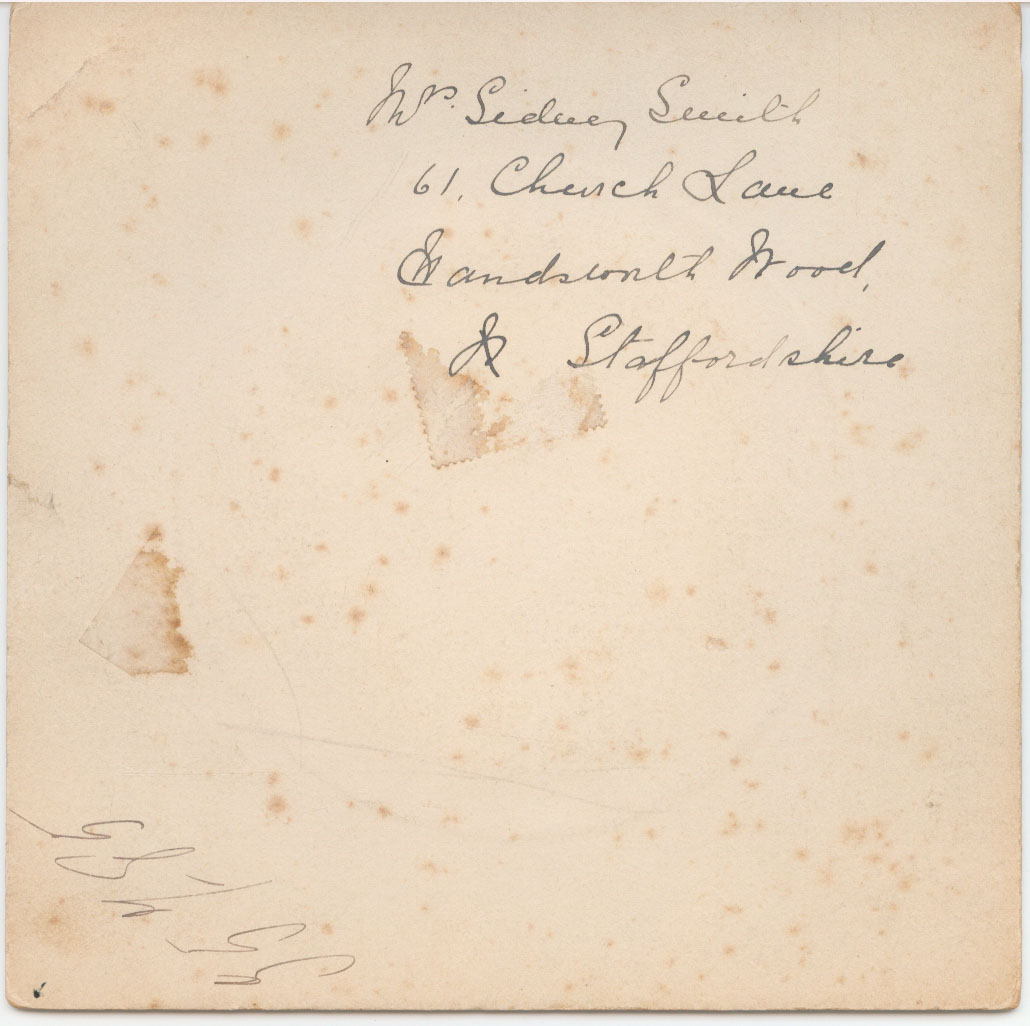 Mr. Sidney Smith
61, Church Lane
Handsworth Wood,
N Staffordshire